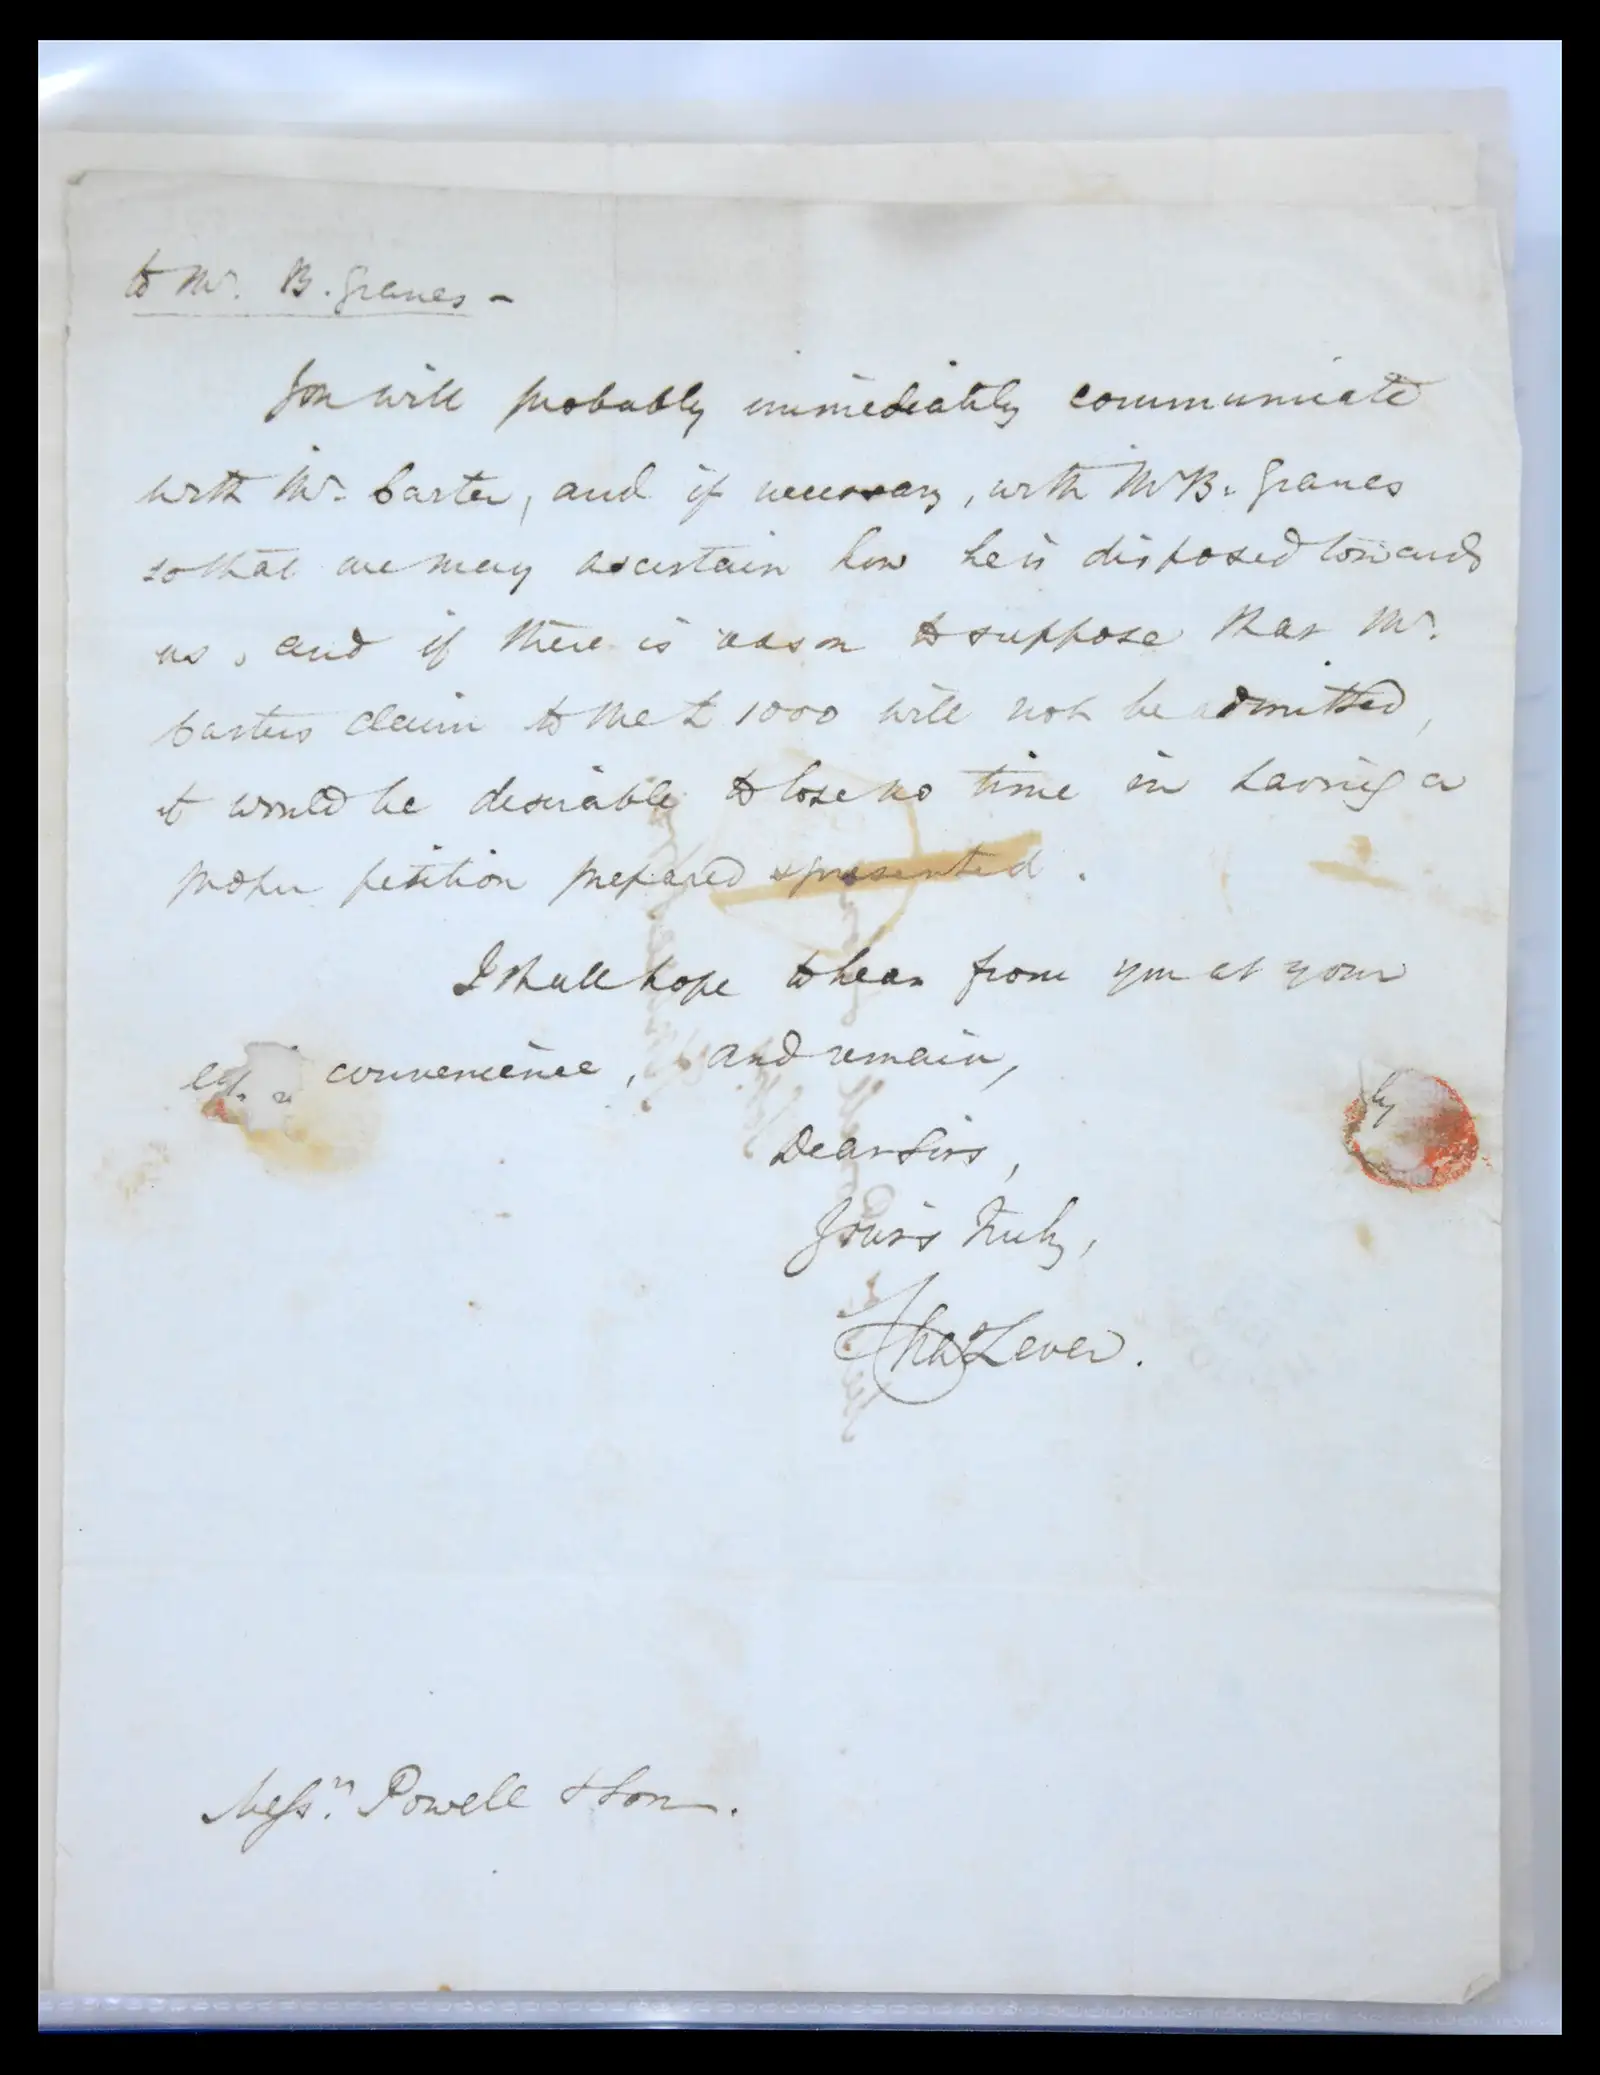 to Mr. B. Graves -
You will probably immediately communicate
with Mr. Carter, and if necessary, with Mr B. Graves
so that we may ascertain how he is disposed towards
us, and if there is reason to suppose that Mr.
Carters claim to the £1000 will not be admitted,
it would be desirable to lose no time in having a
proper petition prepared & presented.
I shall hope to hear from you at your
convenience, and remain,
Dear Sirs,
Yours truly,
Thos Lever.
Messrs. Powell & Son.